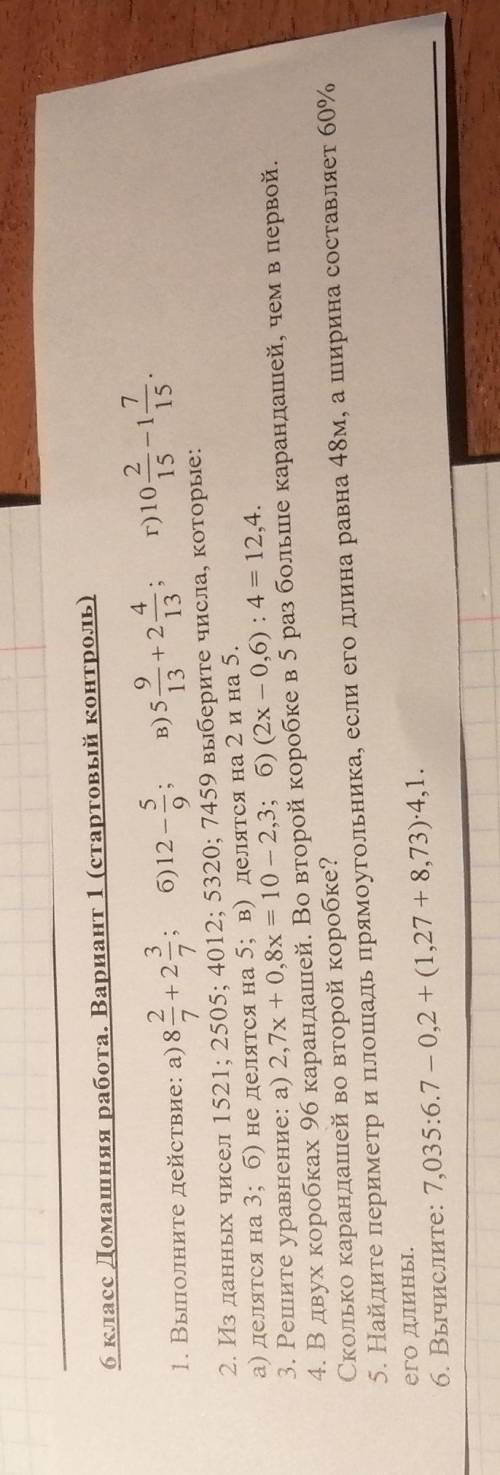 6 класс Домашняя работа. Вариант 1 (стартовый контроль)
1. Выполните действие: а) 8 2/7 + 2 3/7; б) 12 − 5/9; в) 5 9/13 + 2 4/13; г) 10 2/15 − 1 7/15.
2. Из данных чисел 1521; 2505; 4012; 5320; 7459 выберите числа, которые:
а) делятся на 3; б) не делятся на 5; в) делятся на 2 и на 5.
3. Решите уравнение: а) 2,7х + 0,8х = 10 – 2,3; б) (2х – 0,6) : 4 = 12,4.
4. В двух коробках 96 карандашей. Во второй коробке в 5 раз больше карандашей, чем в первой.
Сколько карандашей во второй коробке?
5. Найдите периметр и площадь прямоугольника, если его длина равна 48м, а ширина составляет 60%
его длины.
6. Вычислите: 7,035:6.7 – 0,2 + (1,27 + 8,73)·4,1.